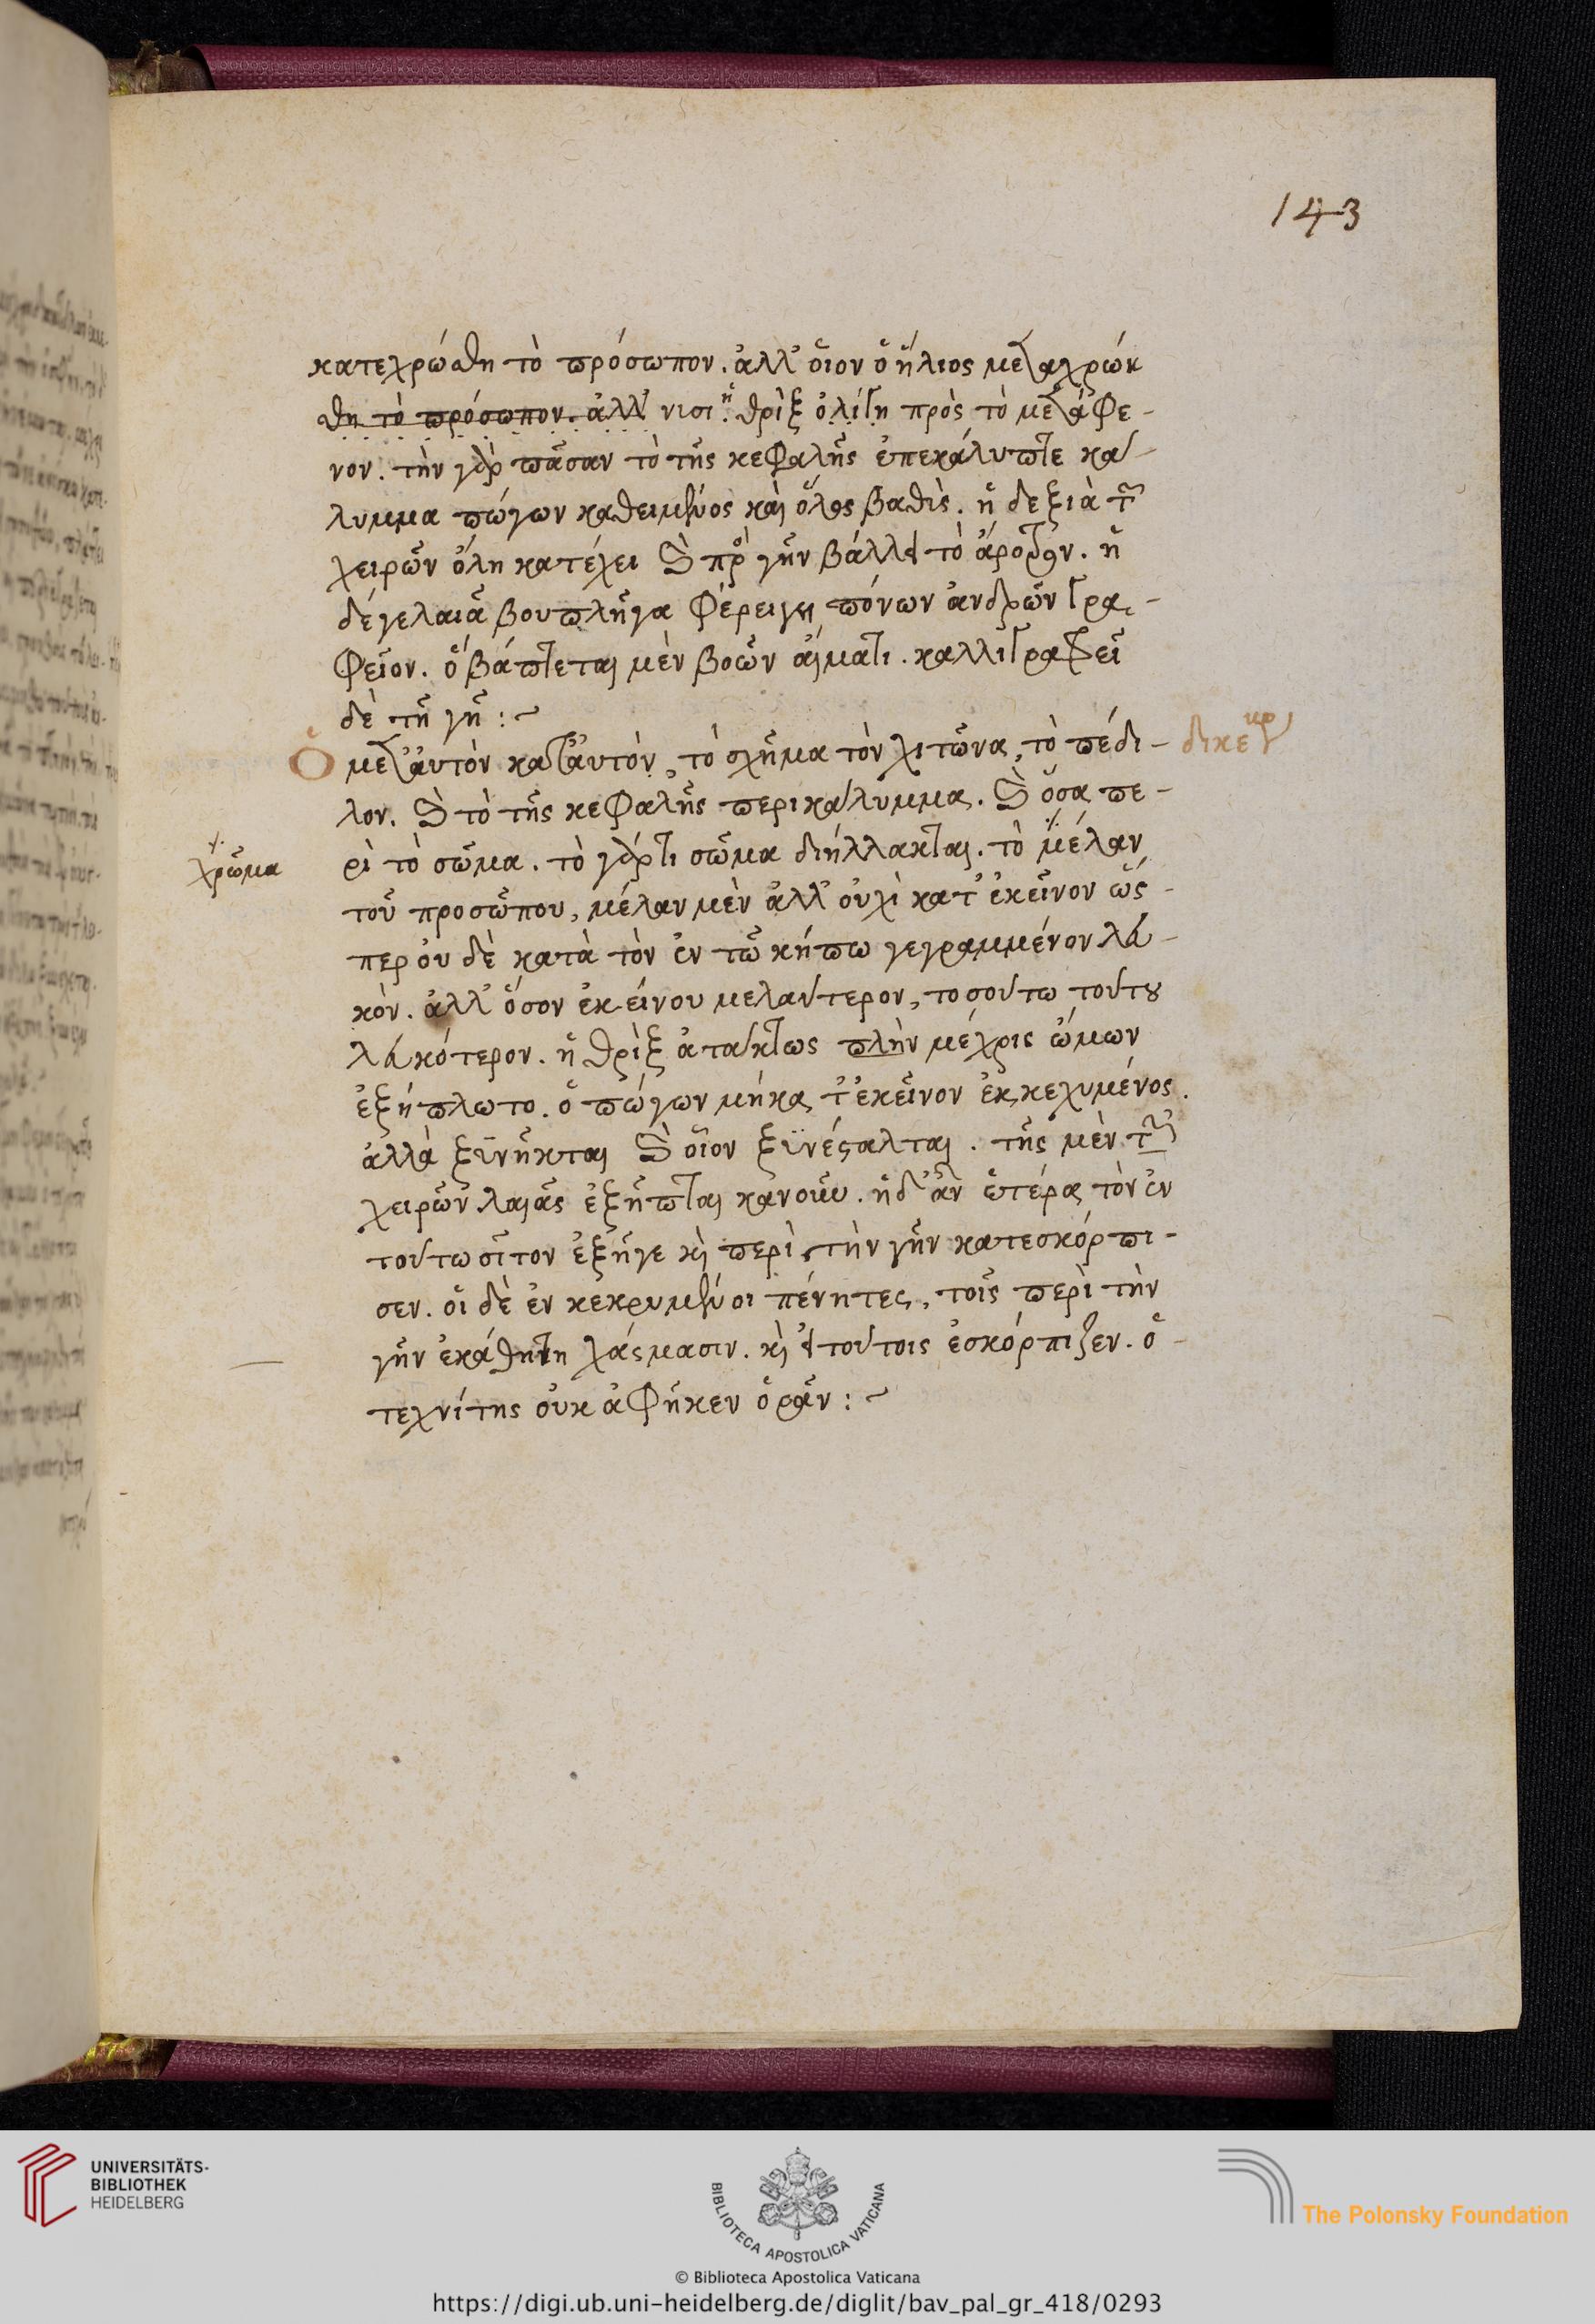 143
κατεχρώσθη τὸ πρόσωπον. ἀλλ' οἷον ὁ ἥλιος μελαγχρώκ
θη τὸ πρόσωπον. ἀλλ' νισι ἡ θρὶξ ὀλίγη πρὸς τὸ μετάφε-
νον. τὴν γὰρ πᾶσαν τὸ τῆς κεφαλῆς ἐπεκάλυπτε κά-
λυμμα πώγων καθειμένος καὶ ὅλος βαθὺς. ἡ δεξιὰ τῶν
χειρῶν ὅλη κατέχει καὶ πρὸς γῆν βάλλει τὸ ἄροτρον. ἡ
δέ γε λαιὰ βουπλῆγα φέρει γῆς πόνων ἀνδρῶν γρα-
φεῖον. ὃ βάπτεται μὲν βοῶν αἵματι. καλλιγραφεῖ
δὲ τῇ γῇ :~
Ὁ μετ' αὐτὸν κατ' αὐτὸν, τὸ σχῆμα τὸν χιτῶνα, τὸ πέδι- δικεμβρ
λον. καὶ τὸ τῆς κεφαλῆς περικάλυμμα. καὶ ὅσα πε-
χρῶμα
ρὶ τὸ σῶμα. τὸ γάρ τι σῶμα διήλλακται. τὸ μέλαν
τοῦ προσώπου, μέλαν μὲν ἀλλ' οὐχὶ κατ' ἐκεῖνον ὥς-
περ οὐ δὲ κατὰ τὸν ἐν τῷ κήπω γεγραμμένον λευ-
κόν. ἀλλ' ὅσον ἐκείνου μελαντερον, τοσούτω τούτου
λευκότερον. ἡ θρὶξ ἀτάκτως πλὴν μέχρις ὤμων
ἐξήπλωτο. ὁ πώγων μὴ κατ' ἐκεῖνον ἐκκεχυμένος.
ἀλλὰ ξυνῆκται καὶ οἷον ξυνέσταλται. τῆς μὲν τῶν
χειρῶν λαιᾶς ἐξῆπται κανοῦν. ἡ δ' ἂν ἑτέρα τὸν ἐν
τούτω σῖτον ἐξῆγε καὶ περὶ τὴν γῆν κατεσκόρπι-
σεν. οἱ δὲ ἐν κεκρυμμένοι πένητες, τοῖς περὶ τὴν
γῆν ἐκάθηντη χάσμασιν. καὶ ἐν τούτοις ἐσκόρπιζεν. ὁ-
τεχνίτης οὐκ ἀφῆκεν ὁρᾶν :~
UNIVERSITÄTS-
BIBLIOTHEK
HEIDELBERG
BIBLIOTECA APOSTOLICA VATICANA
The Polonsky Foundation
© Biblioteca Apostolica Vaticana
https://digi.ub.uni-heidelberg.de/diglit/bav_pal_gr_418/0293